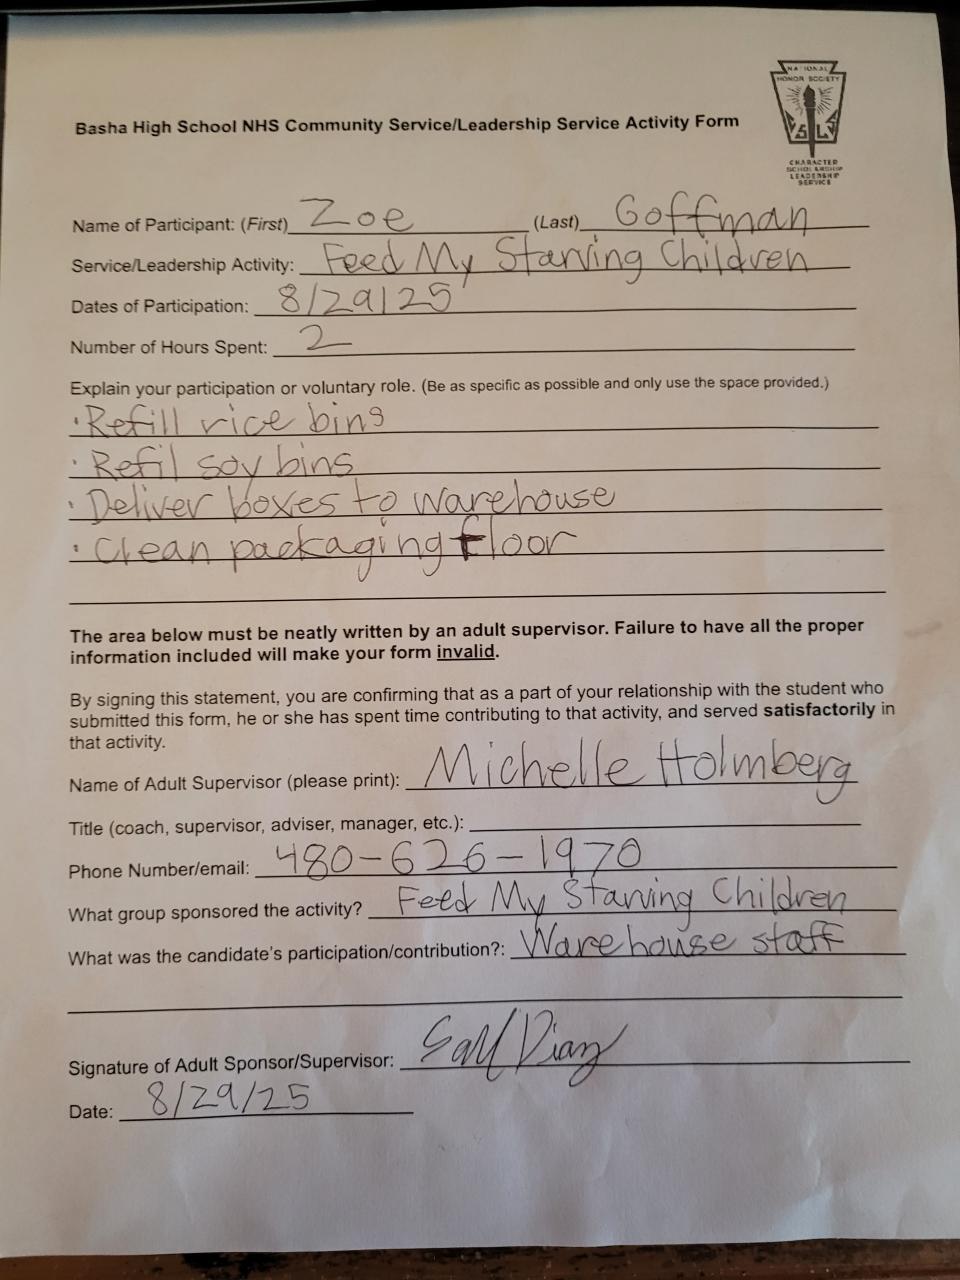 NATIONAL
HONOR SOCIETY
S L
CHARACTER
SCHOLARSHIP
LEADERSHIP
SERVICE
Basha High School NHS Community Service/Leadership Service Activity Form
Name of Participant: (First) Zoe (Last) Goffman
Service/Leadership Activity: Feed My Starving Children
Dates of Participation: 8/29/25
Number of Hours Spent: 2
Explain your participation or voluntary role. (Be as specific as possible and only use the space provided.)
· Refill rice bins
· Refil soy bins
· Deliver boxes to warehouse
· Clean packaging floor
The area below must be neatly written by an adult supervisor. Failure to have all the proper
information included will make your form invalid.
By signing this statement, you are confirming that as a part of your relationship with the student who
submitted this form, he or she has spent time contributing to that activity, and served satisfactorily in
that activity.
Name of Adult Supervisor (please print): Michelle Holmberg
Title (coach, supervisor, adviser, manager, etc.):
Phone Number/email: 480-626-1970
What group sponsored the activity? Feed My Starving Children
What was the candidate's participation/contribution?: Warehouse staff
Signature of Adult Sponsor/Supervisor: Diaz
Date: 8/29/25